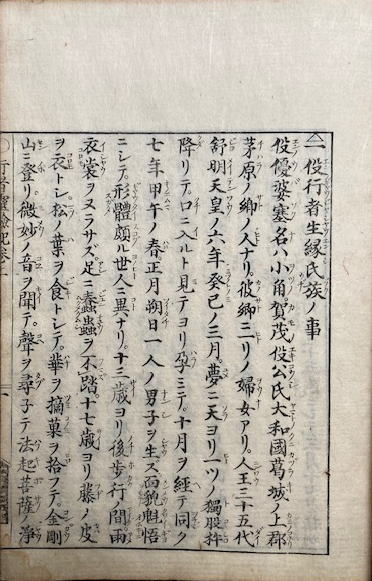 一役行者生縁氏族ノ事
役優婆塞名ハ小角賀茂役公氏大和國葛城ノ上郡
茅原ノ郷ノ人ナリ彼郷ニ一リノ婦女アリ人王三十五代
舒明天皇ノ六年癸巳ノ三月夢ニ天ヨリ一ツノ獨股杵
降リテ口ニ入ルト見テヨリ孕ミテ十月ヲ經テ同ク
七年甲午ノ春正月朔日一人ノ男子ヲ生ス面貌魁悟
ニシテ形體頗ル世人ニ異ナリ十三歳ヨリ後歩行ノ間雨
衣裳ヲヌラサズ足ニ蠢蟲ヲ不踏十七歳ヨリ藤ノ皮
ヲ衣トシ松ノ葉ヲ食トシテ華ヲ摘菓ヲ拾フテ金剛
山ニ登リ微妙ノ音ヲ聞テ聲ヲ尋子テ法起菩薩ノ浄
役行者靈驗記卷上
一